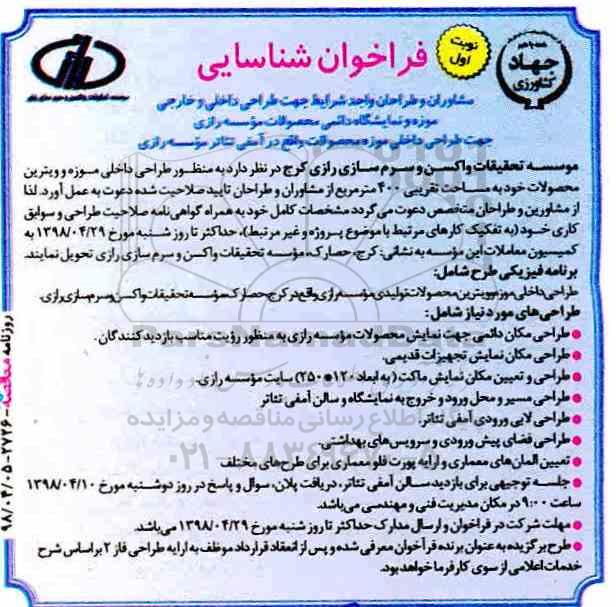 هفته با هم
جهاد
کشاورزی
نوبت
اول
فراخوان شناسایی
مشاوران و طراحان واجد شرایط جهت طراحی داخلی و خارجی
موزه و نمایشگاه دائمی محصولات مؤسسه رازی
جهت طراحی داخلی موزه محصولات واقع در آمفی تئاتر مؤسسه رازی
موسسه تحقیقات واکسن و سرم سازی رازی کرج در نظر دارد به منظور طراحی داخلی موزه و ویترین
محصولات خود به مساحت تقریبی ۴۰۰ مترمربع از مشاوران و طراحان تایید صلاحیت شده دعوت به عمل آورد. لذا
از مشاورین و طراحان متخصص دعوت می گردد مشخصات کامل خود به همراه گواهی نامه صلاحیت طراحی و سوابق
کاری خود (به تفکیک کارهای مرتبط با موضوع پروژه و غیر مرتبط)، حداکثر تا روز شنبه مورخ ۱۳۹۸/۰۴/۲۹ به
کمیسیون معاملات این مؤسسه به نشانی: کرج، حصارک، مؤسسه تحقیقات واکسن و سرم سازی رازی تحویل نمایند.
برنامه فیزیکی طرح شامل:
طراحی داخلی موزه و ویترین محصولات تولیدی مؤسسه رازی واقع در کرج، حصارک مؤسسه تحقیقات واکسن و سرم سازی رازی.
طراحی های مورد نیاز شامل:
● طراحی مکان دائمی جهت نمایش محصولات مؤسسه رازی به منظور رؤیت مناسب بازدید کنندگان.
● طراحی مکان نمایش تجهیزات قدیمی.
● طراحی و تعیین مکان نمایش ماکت (به ابعاد ۱۲۰*۲۵۰) سایت مؤسسه رازی.
● طراحی مسیر و محل ورود و خروج به نمایشگاه و سالن آمفی تئاتر
● طراحی لابی ورودی آمفی تئاتر.
● طراحی فضای پیش ورودی و سرویس های بهداشتی.
● تعیین المان های معماری و ارایه پورت فلو معماری برای طرح های مختلف
● جلسه توجیهی برای بازدید سالن آمفی تئاتر، دریافت پلان، سوال و پاسخ در روز دوشنبه مورخ ۱۳۹۸/۰۴/۱۰
ساعت ۹:۰۰ در مکان مدیریت فنی و مهندسی می باشد.
● مهلت شرکت در فراخوان و ارسال مدارک حداکثر تا روز شنبه مورخ ۱۳۹۸/۰۴/۲۹ می باشد.
● طرح برگزیده به عنوان برنده فراخوان معرفی شده و پس از انعقاد قرارداد موظف به ارایه طراحی فاز ۲ براساس شرح
خدمات اعلامی از سوی کارفرما خواهد بود.
روزنامه مناقصه - ۲۷۲۶ - ۹۸/۰۴/۰۵
ParsNamadData
پایگاه اطلاع رسانی مناقصه و مزایده